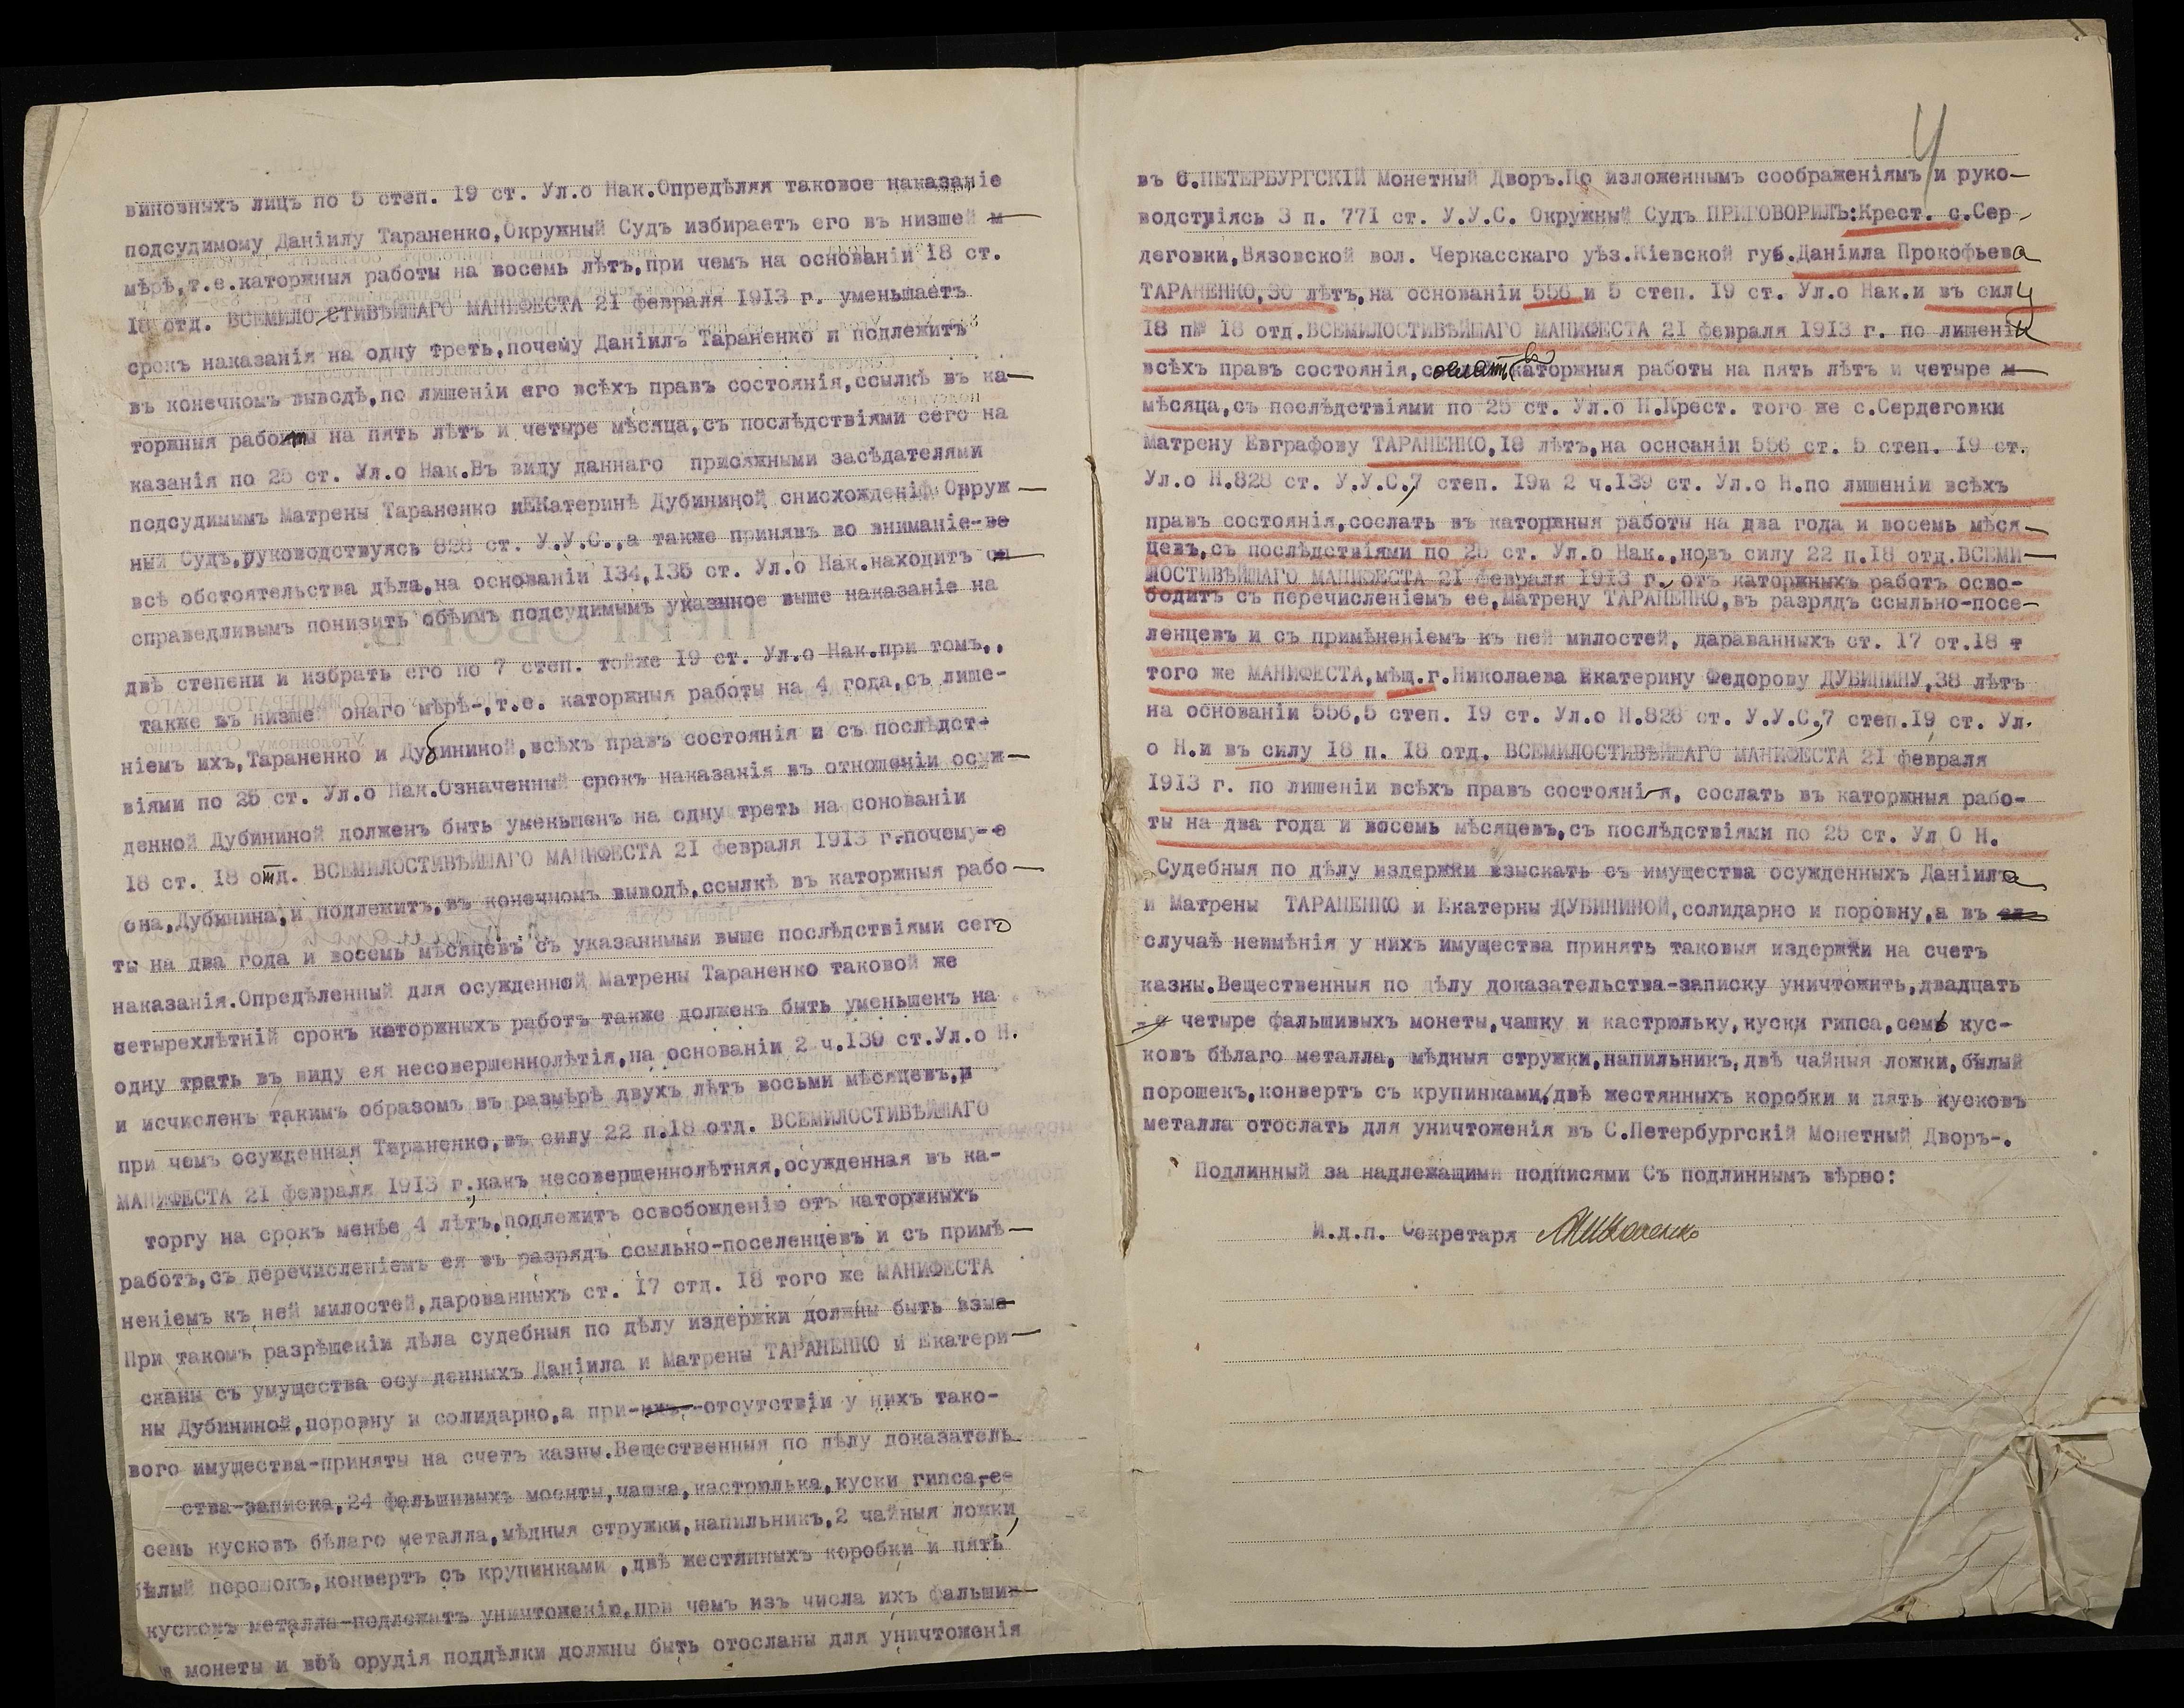 виновныхъ лицъ по 5 степ. 19 ст. Ул.о Нак.Опредѣляя таковое наказаніе
подсудимому Даніилу Тараненко,Окружный Судъ избираетъ его въ низшей м
мѣрѣ,т.е.каторжныя работы на восемь лѣтъ,при чемъ на основаніи 18 ст.
18 отд. ВСЕМИЛО СТИВѢЙШАГО МАНИФЕСТА 21 февраля 1913 г. уменьшаетъ
срокъ наказанія на одну треть,почему Даніилъ Тараненко и подлежитъ
въ конечномъ выводѣ,по лишеніи его всѣхъ правъ состоянія,ссылкѣ въ ка-
торжныя работы на пять лѣтъ и четыре мѣсяца,съ послѣдствіями сего на
казанія по 25 ст. Ул.о Нак.Въ виду даннаго присяжными засѣдателями
подсудимымъ Матрены Тараненко иЕкатеринѣ Дубининой снисхожденія Орруж-
ный Судъ,руководствуясь 828 ст. У.У.С.,а также принявъ во вниманіе-ве
всѣ обстоятельства дѣла,на основаніи 134,135 ст. Ул.о Нак.находитъ сп
справедливымъ понизить обѣимъ подсудимымъ указаное выше наказаніе на
двѣ степени и избрать его по 7 степ. тойже 19 ст. Ул.о Нак.при томъ,,
также въ низшей онаго мѣрѣ-,т.е. каторжныя работы на 4 года,съ лише-
ніемъ ихъ,Тараненко и Дубининой,всѣхъ правъ состоянія и съ послѣдст-
віями по 25 ст. Ул.о Нак.Означенный срокъ наказанія въ отношеніи осуж-
денной Дубининой долженъ быть уменьшенъ на одну треть на соновании
18 ст. 18 отд. ВСЕМИЛОСТИВѢЙШАГО МАНИФЕСТА 21 февраля 1913 г.-почему-е
она,Дубинина,и подлежитъ,въ конечномъ выводѣ,ссылкѣ въ каторжныя рабо-
ты на два года и восемь мѣсяцевъ съ указанными выше послѣдствіями сего
наказанія.Опредѣленный для осужденной Матрены Тараненко таковой же
четырехлѣтній срокъ каторжныхъ работъ также долженъ быть уменьшенъ на
одну треть въ виду ея несовершеннолѣтія,на основаніи 2 ч.139 ст.Ул.о Н.
и исчисленъ такимъ образомъ въ размѣрѣ двухъ лѣтъ восьми мѣсяцевъ,и
при чемъ осужденная Тараненко,въ силу 22 п.18 отд. ВСЕМИЛОСТИВѢЙШАГО
МАНИФЕСТА 21 февраля 1913 г.,какъ несовершеннолѣтняя,осужденная въ ка-
торгу на срокъ менѣе 4 лѣтъ,подлежитъ освобожденію отъ каторжныхъ
работъ,съ перечисленіемъ ея въ разрядъ ссыльно-поселенцевъ и съ примѣ-
неніемъ къ ней милостей,дарованныхъ ст. 17 отд. 18 того же МАНИФЕСТА
При такомъ разрѣшеніи дѣла судебныя по дѣлу издержки должны быть взые
сканы съ умущества осу денныхъ Даніила и Матрены ТАРАНЕНКО и Екатери-
ны Дубининой,поровну и солидарно,а при отсутствіи у нихъ тако-
вого имущества-приняты на счетъ казны.Вещественныя по дѣлу доказатель-
ства-записка,24 фальшивыхъ моенты,чашка,кастрюлька,куски гипса,-се
семь кусковъ бѣлаго металла,мѣдныя стружки,напильникъ,2 чайныя ложки,
бѣлый порошокъ,конвертъ съ крупинками ,двѣ жестянныхъ коробки и пять
кусковъ металла-подлежатъ уничтоженію,при чемъ изъ числа ихъ фальшив-
я монеты и всѣ орудія поддѣлки должны быть отосланы для уничтоженія
4
въ С.ПЕТЕРБУРГСКІЙ Монетный Дворъ.По изложеннымъ соображеніямъ и руко-
водствіясь 3 п. 771 ст. У.У.С. Окружный Судъ ПРИГОВОРИЛЪ:Крест. с.Сер-
деговки,Вязовской вол. Черкасскаго уѣз.Кіевской губ.Даніила Прокофьева
ТАРАНЕНКО,30 лѣтъ,на основаніи 556 и 5 степ. 19 ст. Ул.о Нак.и въ силу
18 п№ 18 отд.ВСЕМИЛОСТИВѢЙШАГО МАНИФЕСТА 21 февраля 1913 г. по лишеніи
всѣхъ правъ состоянія,сослать въ каторжныя работы на пять лѣтъ и четыре м
мѣсяца,съ послѣдствіями по 25 ст. Ул.о Н.Крест. того же с.Сердеговки
Матрену Евграфову ТАРАНЕНКО,18 лѣтъ,на осноаніи 556 ст. 5 степ. 19 ст.
Ул.о Н.828 ст. У.У.С,7 степ. 19и 2 ч.139 ст. Ул.о Н.по лишеніи всѣхъ
правъ состоянія,сослать въ каторжныя работы на два года и восемь мѣся-
цевъ,съ послѣдствіями по 25 ст. Ул.о Нак.,новъ силу 22 п.18 отд.ВСЕМИ-
ЛОСТИВѢЙШАГО МАНИФЕСТА 21 февраля 1913 г.,отъ каторжныхъ работъ осво-
бодить съ перечисленіемъ ее,Матрену ТАРАНЕНКО,въ разрядъ ссыльно-посе-
ленцевъ и съ примѣненіемъ къ ней милостей, дараванныхъ ст. 17 от.18 т
того же МАНИФЕСТА,мѣщ.г.Николаева Екатерину Федорову ДУБИНИНУ,38 лѣтъ
на основаніи 556,5 степ. 19 ст. Ул.о Н.828 ст. У.У.С,7 степ.19 ст. Ул.
о Н.и въ силу 18 п. 18 отд. ВСЕМИЛОСТИВѢЙШАГО МАНИФЕСТА 21 февраля
1913 г. по лишеніи всѣхъ правъ состоянія, сослать въ каторжныя рабо-
ты на два года и восемь мѣсяцевъ,съ послѣдствіями по 25 ст. Ул О Н.
Судебныя по дѣлу издержки взыскать съ имущества осужденныхъ Даніила
и Матрены ТАРАНЕНКО и Екатерны ДУБИНИНОЙ,солидарно и поровну,а въ сл
случаѣ неимѣнія у нихъ имущества принять таковыя издержки на счетъ
казны.Вещественныя по дѣлу доказательства-записку уничтожить,двадцать
четыре фальшивыхъ монеты,чашку и кастрюльку,куски гипса,семь кус-
ковъ бѣлаго металла, мѣдныя стружки,напильникъ,двѣ чайныя ложки,бѣлый
порошек,конвертъ съ крупинками,двѣ жестянныхъ коробки и пять кусковъ
металла отослать для уничтоженія въ С.Петербургскій Монетный Дворъ-.
Подлинный за надлежащими подписями Съ подлиннымъ вѣрно:
И.д.п. Секретаря